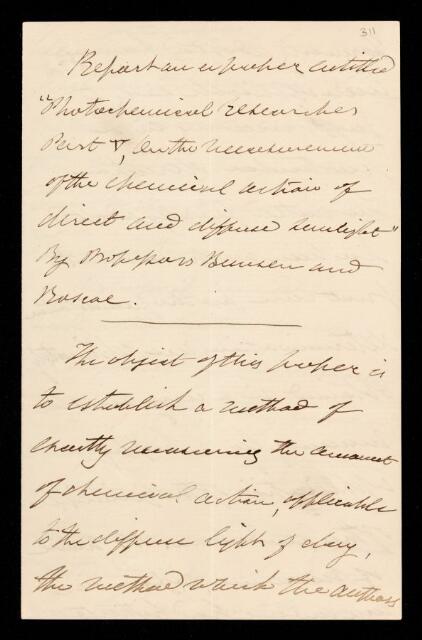 311
Report on a paper entitled
"Photochemical researches
Part V, On the measurement
of the chemical action of
direct and diffuse sunlight"
By Professors Bunsen and
Roscoe.
The object of this paper is
to establish a method of
exactly measuring the amount
of chemical action, applicable
to the diffuse light of day,
the method which the authors